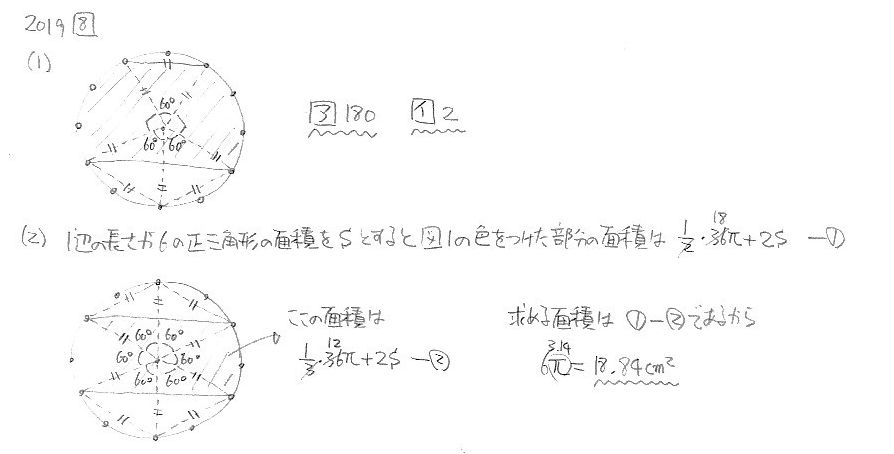 2019 8
(1)
60°
60° 60°
ア 180 イ 2
(2) 1辺の長さが6の正三角形の面積をSとすると図1の色をつけた部分の面積は 1/2・36π+2S ―①
18
60° 60°
60° 60°
60° 60°
ここの面積は
12
1/3・36π+2S ―②
求める面積は ①-②であるから
3.14
6π=18.84cm²